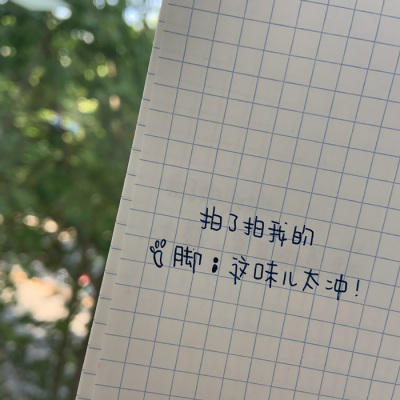 拍了拍我的
脚：这味儿太冲！